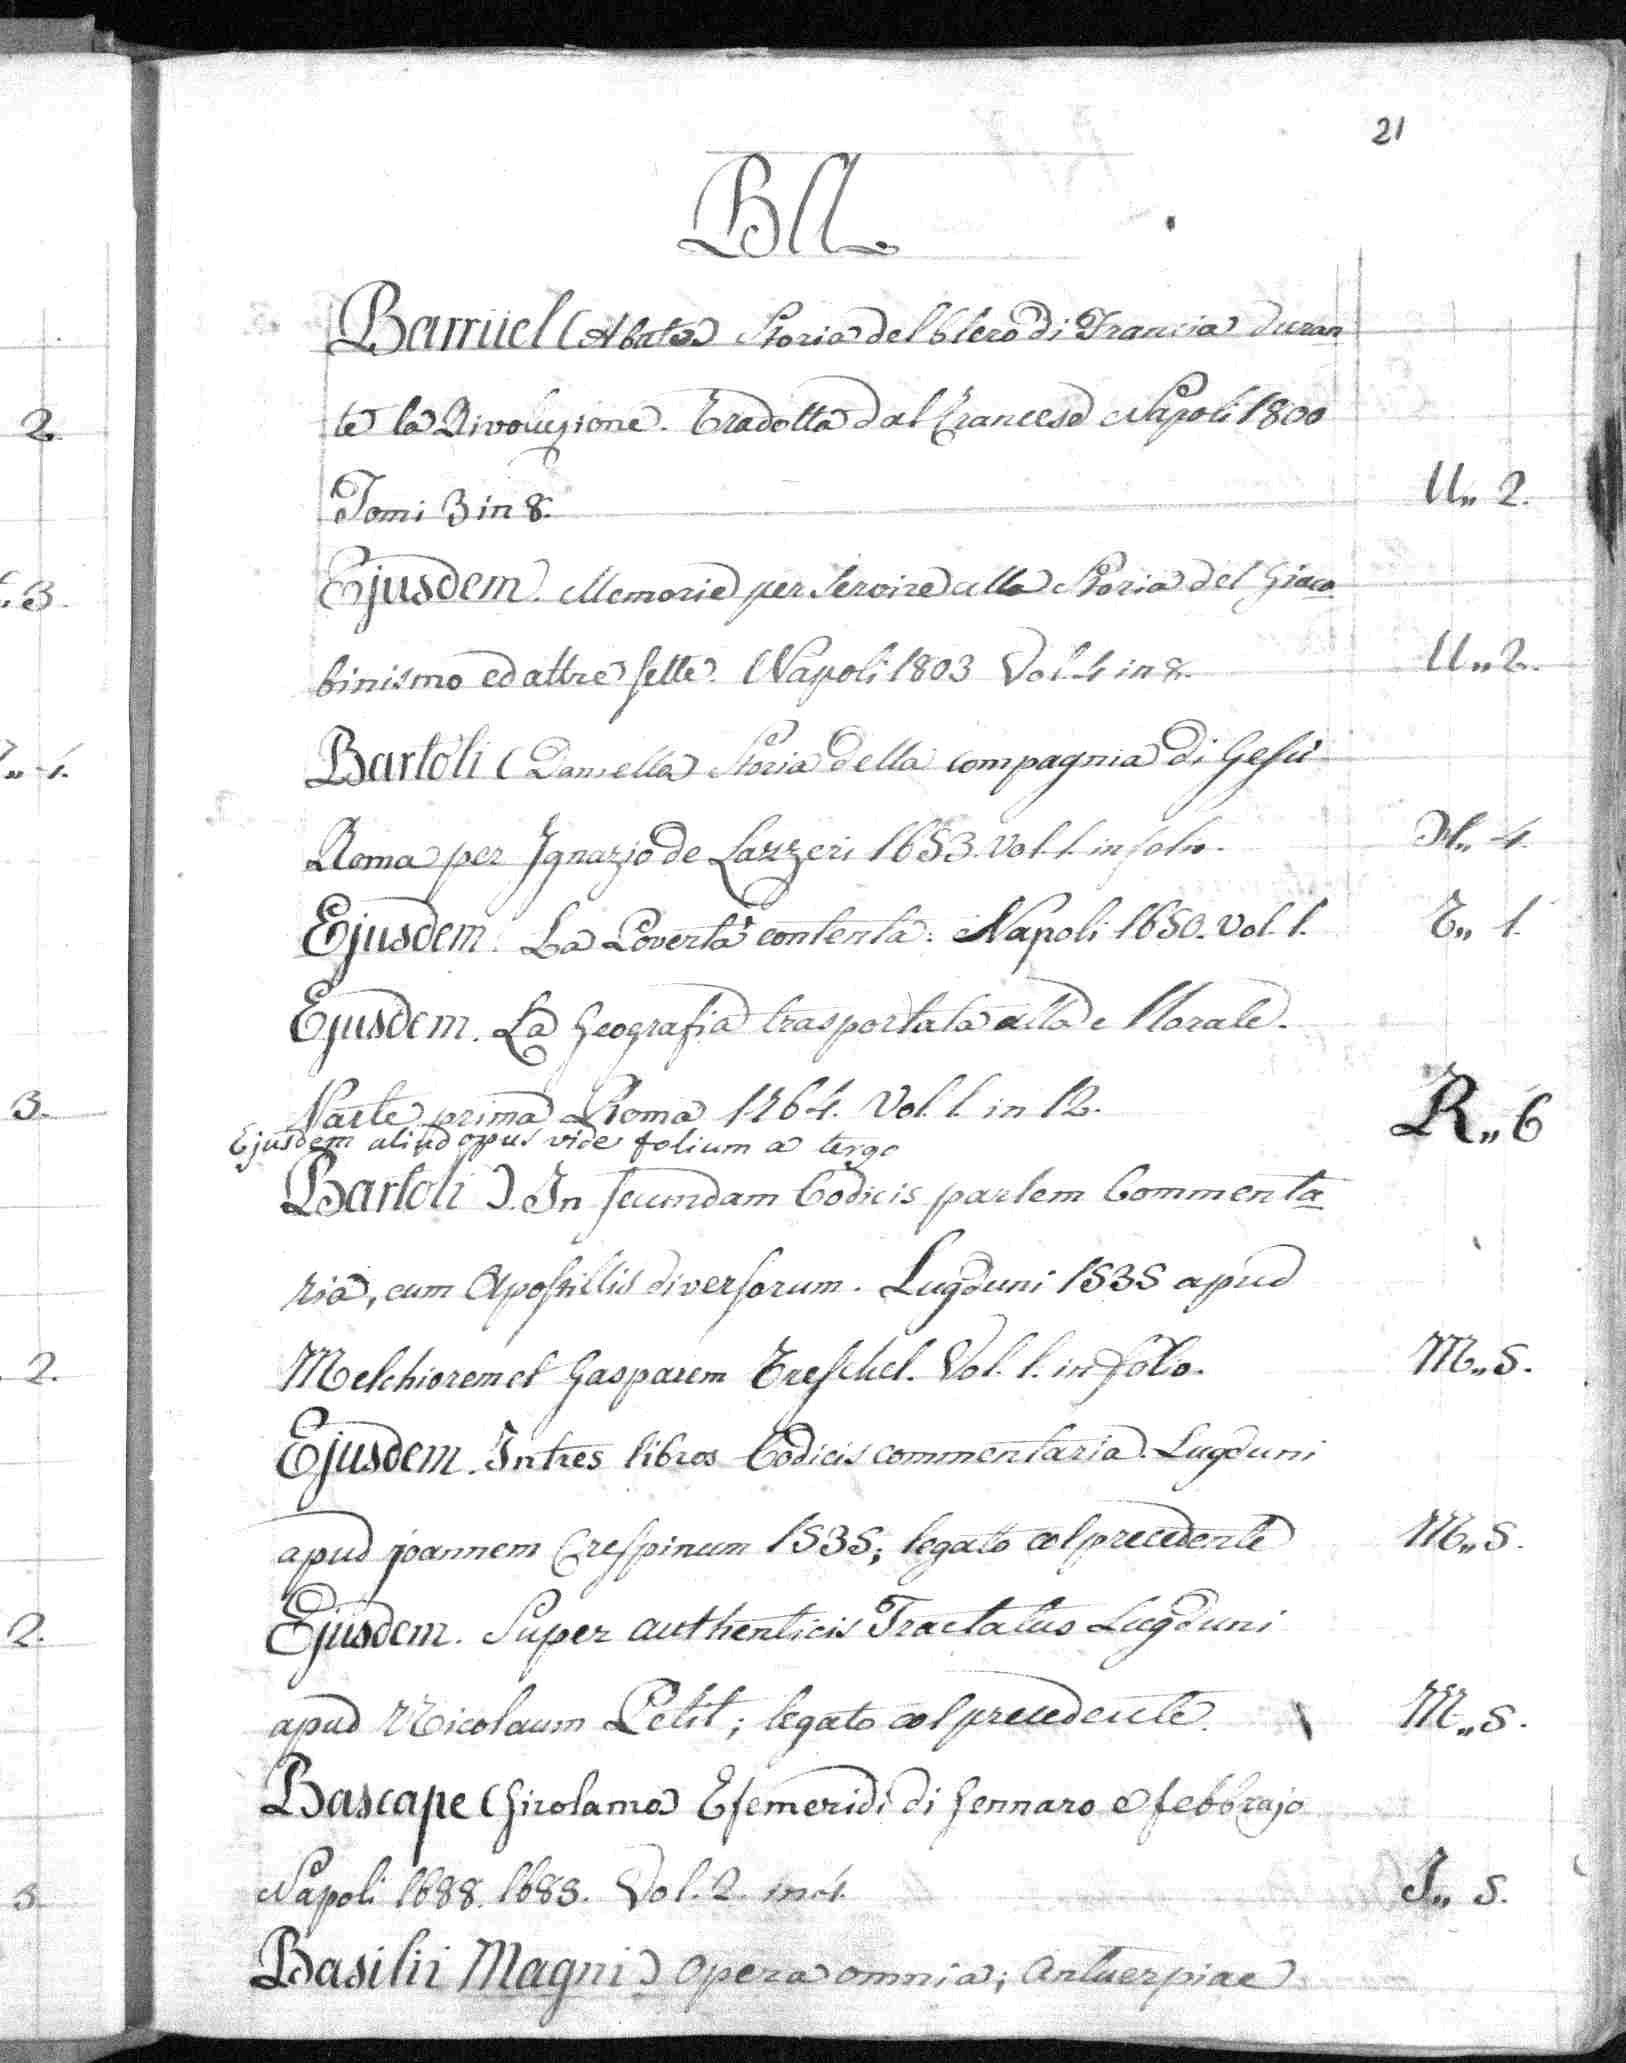 21
BA
Barruel (Abate) Storia del Clero di Francia duran
te la Rivoluzione. Tradotta dal Francese Napoli 1800
Tomi 3 in 8. U,, 2.
Ejusdem. Memorie per servire alla Storia del Giaco
binismo ed altre sette. Napoli 1803 Vol. 4 in 8. U,, 2.
Bartoli (Daniello) Storia della compagnia di Gesù
Roma per Ignazio de Lazzeri 1653. Vol. 1. in folio. H,, 4.
Ejusdem. La Povertà contenta. Napoli 1650. Vol. 1. T,, 1.
Ejusdem. La Geografia trasportata alla Morale.
Parte prima Roma 1664. Vol. 1. in 12. R,, 6
Ejusdem aliud opus vide folium a tergo
Bartoli). In secundam Codicis partem Commenta
ria, cum Apostillis diversorum. Lugduni 1535 apud
Melchiorem et Gasparem Treschel. Vol. 1. in folio. M,, 5.
Ejusdem. In tres libros Codicis commentaria. Lugduni
apud joannem Crespinum 1535; legato col precedente M,, 5.
Ejusdem. Super authenticis Tractatus Lugduni
apud Nicolaum Petit; legato col precedente. M,, 5.
Bascape (Girolamo) Efemeridi di Gennaro e febbrajo
Napoli 1688. 1683. Vol. 2. in 4. I,, 5.
Basilii Magni) Opera omnia; Antuerpiae
2.
3.
4.
3.
2.
2.
3.